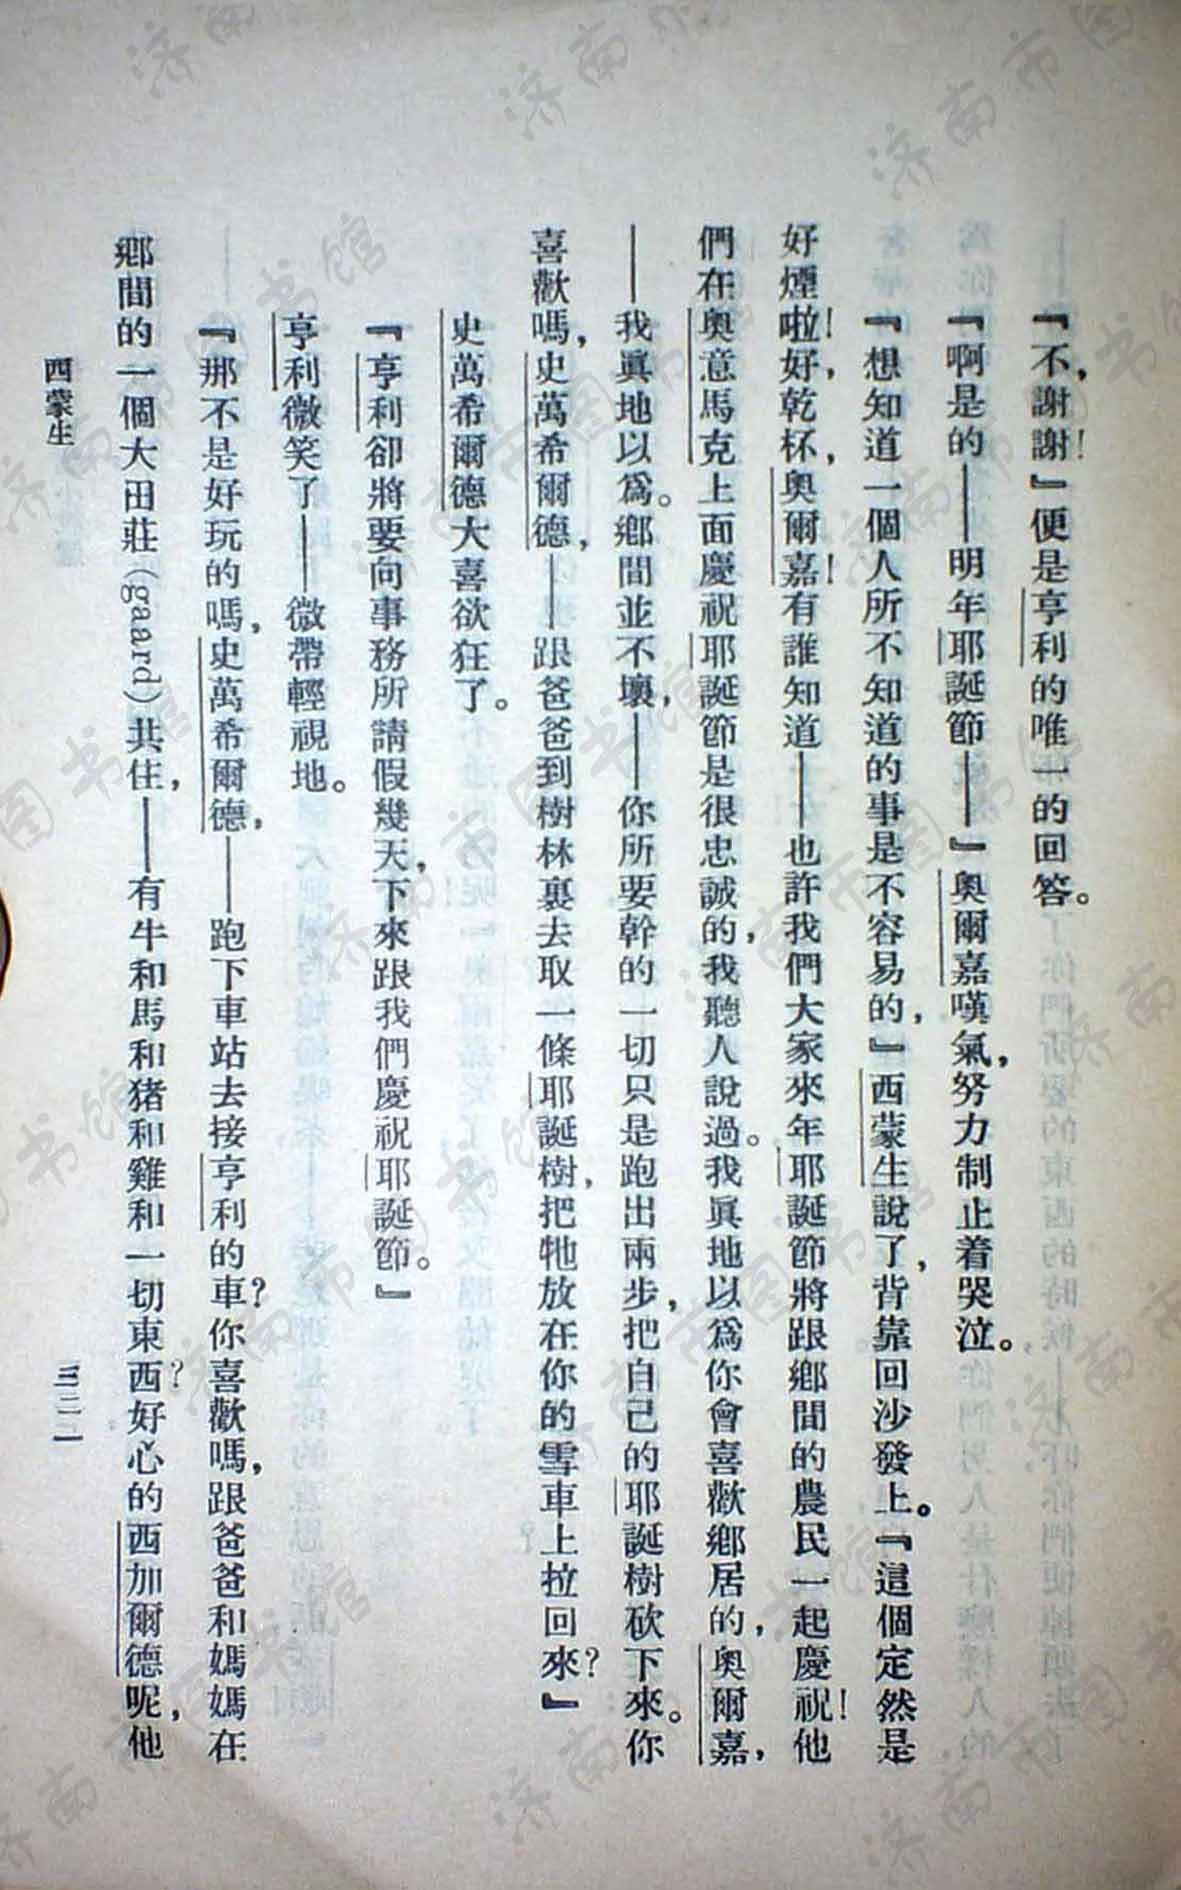 『不，謝謝！』便是亨利的唯一的回答。
『啊是的——明年耶誕節——』奧爾嘉嘆氣，努力制止着哭泣。
『想知道一個人所不知道的事是不容易的，』西蒙生說了，背靠回沙發上。『這個定然是
好煙啦！好，好乾杯，奧爾嘉！有誰知道——也許我們大家來年耶誕節將跟鄉間的農民一起慶祝！他
們在奧意馬克上面慶祝耶誕節是很忠誠的，我聽人說過。我眞地以爲你會喜歡鄉居的，奧爾嘉，
——我眞地以爲。鄉間並不壞，——你所要幹的一切只是跑出兩步，把自己的耶誕樹砍下來。你
喜歡嗎，史萬希爾德，——跟爸爸到樹林裏去取一條耶誕樹，把牠放在你的雪車上拉回來？』
史萬希爾德大喜欲狂了。
『亨利卻將要向事務所請假幾天，下來跟我們慶祝耶誕節。』
亨利微笑了——微帶輕視地。
『那不是好玩的嗎，史萬希爾德，——跑下車站去接亨利的車？你喜歡嗎，跟爸爸和媽媽在
鄉間的一個大田莊（gaard）共住，——有牛和馬和猪和雞和一切東西？好心的西加爾德呢，他
西蒙生
三二一
济南市图书馆